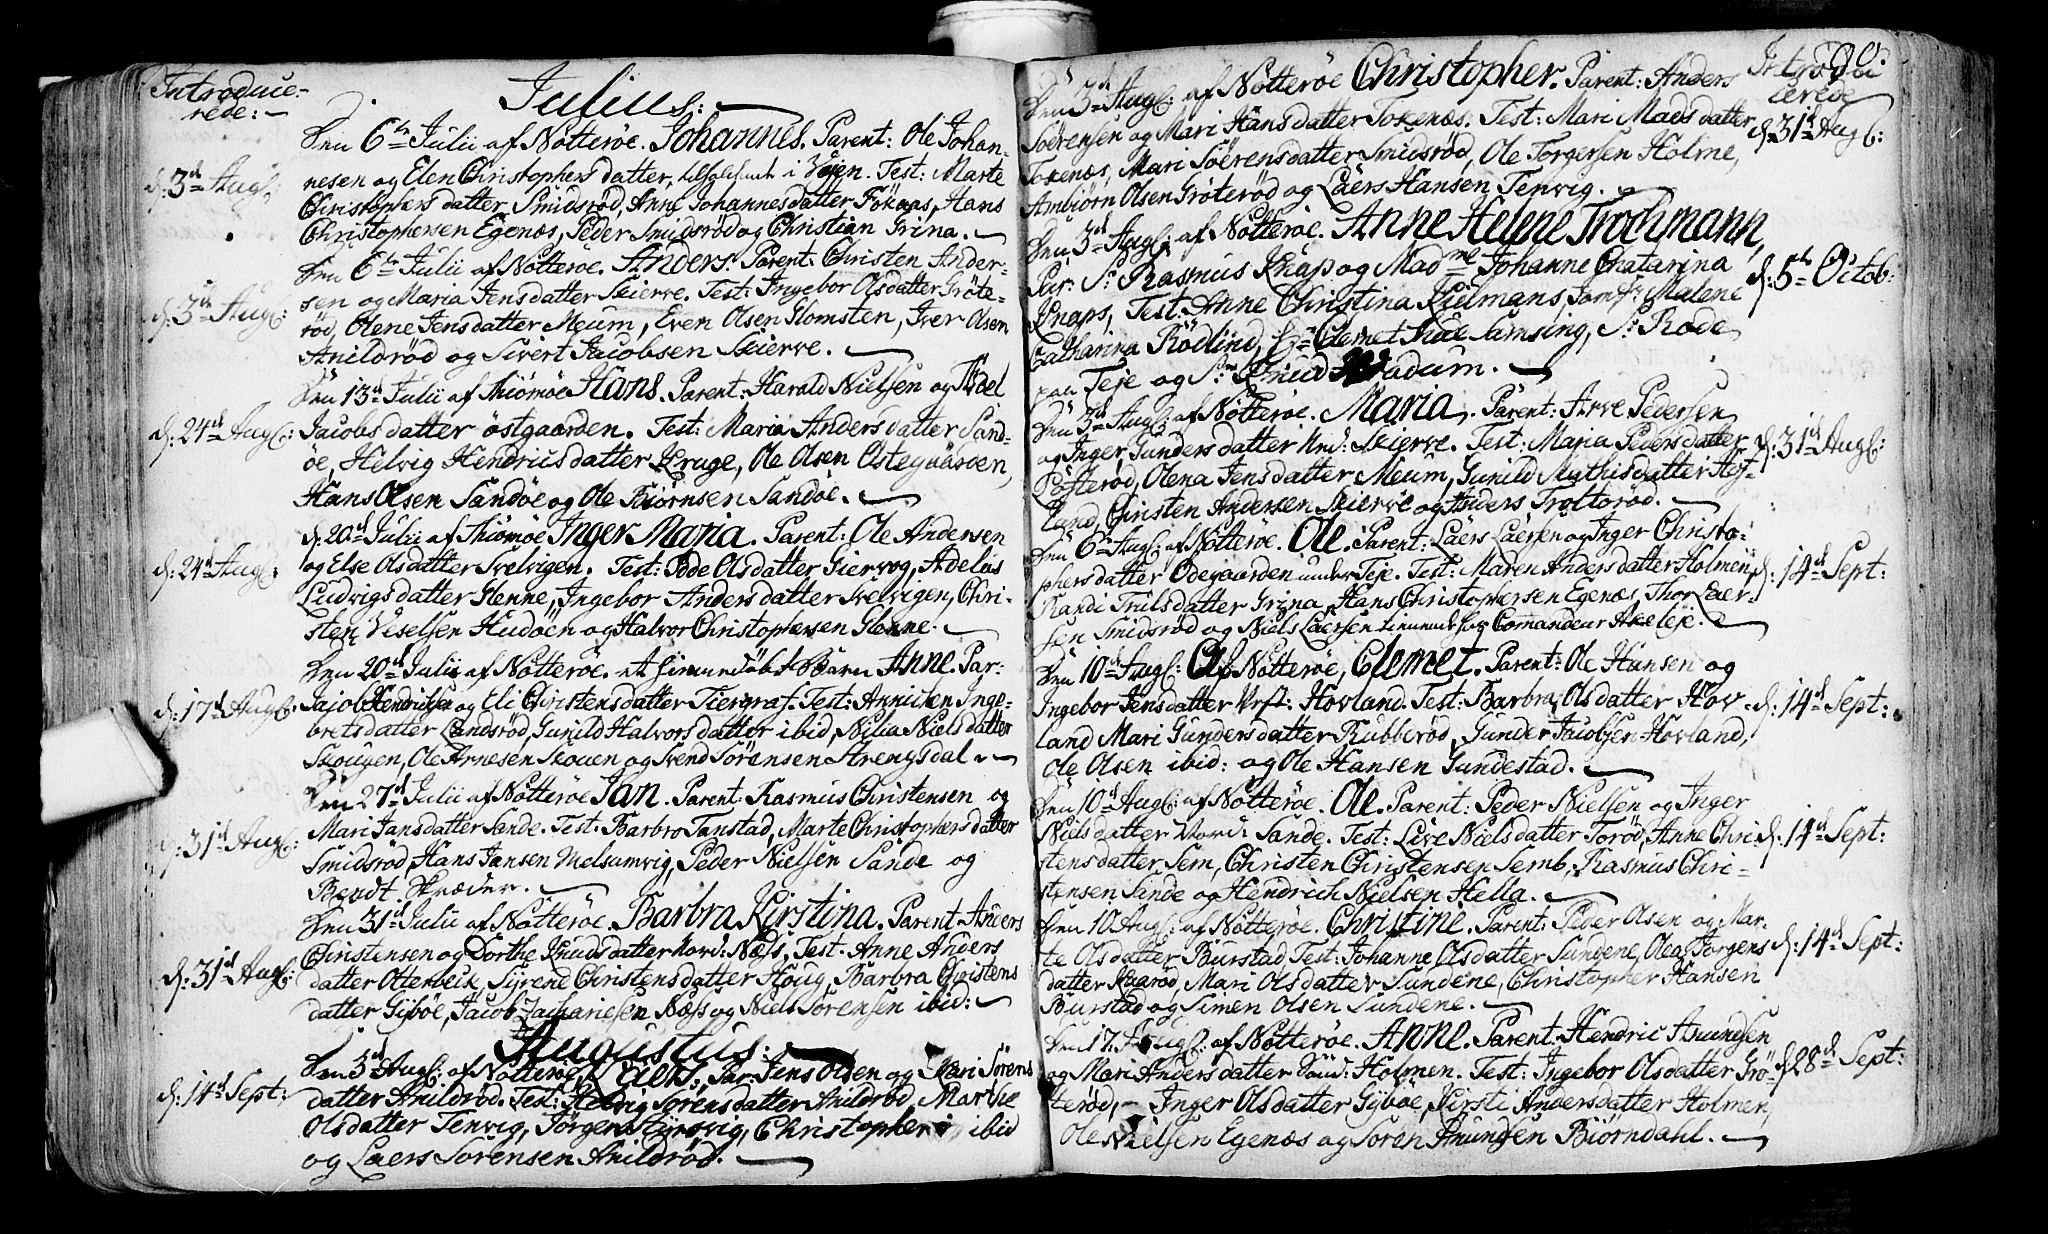 Introduce-
rede:
Julius:
Den 6te Julii af Nötteröe. Johannes. Parent: Ole Johan-
d: 3d Aug: nesen og Elen Christophersdatter, i Veien. Test: Marte
Christophersdatter Smidsröd, Anne Johannesdatter Fökaas, Hans
Christophersen Egenæs, Peder Smidsröd og Christian Grina.
Den 6te Julii af Nötteroe. Anders. Parent: Christen Ander-
d: 3d Aug: sen og Maria Jensdatter Skierve. Test: Ingebor Olsdatter Gröte-
röd, Olene Jensdatter Meum, Even Olsen Glomsten, Iver Olsen
Anildröd og Sivert Jacobsen Skierve.
Den 13d Julii af Thiömöe Hans. Parent: Harald Nielsen og Sidel
d: 24d Aug: Jacobsdatter Östgaarden. Test: Maria Andersdatter Sand-
öe, Helvig Hendricsdatter Kruge, Ole Olsen Östegaarden,
Hans Olsen Sandöe og Ole Biörnsen Sandöe.
d: 20d Julii af Thiömöe Inger Maria. Parent: Ole Andersen
d: 24d Aug: og Else Olsdatter Svelvigen. Test: Pode Olsdatter Giervog, Adelus
Ludvigsdatter Glenne, Ingebor Andersdatter Svelvigen, Chri-
sten Veselsen Hudöen og Halvor Christophersen Glenne.
Den 20d Julii af Nötteröe. et hiemmedöbt Barn Anne. Par-
d: 17d Aug: Jacob Hendriksen og Eli Christensdatter Tiergraf. Test: Annicken Inge-
bretsdatter Landsröd, Gunild Halvorsdatter ibid, Nilia Nielsdatter
Skougen, Ole Arnesen Skouen og Svend Sörensen Arengsdal
Den 27d Julii af Nötteröe Jan. Parent: Rasmus Christensen og
d: 31d Aug: Mari Jansdatter Sande. Test: Barbro Tanstad, Marte Christophersdatter
Smidsröd, Hans Jansen Melsamvig, Peder Nielsen Sande og
Bendt Skræder.
Den 31d Julii af Nötteröe. Barbra Kirstina. Parent: Anders
Christensen og Dorthe Knudsdatter Nord: Næss, Test: Anne Anders
d: 31d Aug: datter Otterbeck, Syrene Christensdatter Houg, Barbra Christens
datter Gyböe, Jacob Zachariesen Næss og Niels Sörensen ibid:
Augustus:
Den 3d Aug: af Nötteröe, Laers, Par: Jens Olsen og Mari Sörens
d: 14d Sept: datter Anildröd. Test: Helvig Sörensdatter Anildröd, Marthe
Olsdatter Tenvig, Törgen Styrsvig, Christopher ibid
og Laers Sörensen Anildröd.
Introdu
cerede
Den 3d Aug: af Nötteröe Christopher. Parent: Anders
Soerensen og Mari Hansdatter Tokenæs. Test: Mari Madsdatter d: 31d Aug:
Tokenæs, Mari Soerensdatter Smidsröd, Ole Torgersen Holme,
Ambiörn Olsen Gröteröd og Laers Hansen Tenvig.
Den 3d Aug: af Nötteröe. Anne Helene Trochmann,
Par: Sr Rasmus Knap og Madme Johanne Chatarina d: 5te Octob:
Knaps, Test: Anne Christina Kielmans, Jomfr: Malene
Catharina Rödlind, Clemet Samsing, Sr Rode
paa Teje og Sr Knud Wadum.
Den 3d Aug: af Nötteröe. Maria. Parent: Arve Pedersen
og Inger Gundersdatter Nrd: Skierve. Test: Maria Pedersdatter d: 31d Aug:
Röfteröd, Olena Jensdatter Meum, Gunild Mathisdatter Hest-
land, Christen Andersen Skierve og Anders Trolleröd.
Den 6te Aug: af Nötteröe. Ole. Parent: Laers Laersen og Inger Christo-
phersdatter Ödegaarden under Teje. Test: Maren Andersdatter Holmen, d: 14d Sept:
Randi Trulsdatter Grina, Hans Christophersen Egenæs, Thor Laer-
sen Smidsröd og Niels Laersen hos Comandeur Akeleje.
Den 10d Aug: Af Nötteröe, Clemet. Parent: Ole Hansen og
Ingebor Jensdatter Hovland. Test: Barbra Olsdatter Hov- d: 14d Sept:
land, Mari Gundersdatter Rubberöd, Gunder Jacobsen Hovland,
Ole Olsen ibid: og Ole Hansen Gundestad.
Den 10d Aug: af Nötteröe. Ole. Parent: Peder Nielsen og Inger
Nielsdatter Nord: Sande. Test: Live Nielsdatter Toröd, Anne Chri d: 14d Sept:
stensdatter Sem, Christen Christensen Semb, Rasmus Chri-
stensen Sande og Hendrich Nielsen Hella.
Den 10 Aug: af Nötteröe. Christine. Parent: Peder Olsen og Mar-
te Olsdatter Burstad Test: Johanne Olsdatter Sundene, Olea Jörgens d: 14d Sept:
datter Skaröd, Mari Olsdatter Sundene, Christopher Hansen
Burstad og Simen Olsen Sundene.
Den 17. Aug: af Nötteröe. Anne. Parent: Hendric Amundsen
og Mari Andersdatter Sönd: Holmen. Test: Ingebor Olsdatter Grö- d: 28d Sept:
teröd, Inger Olsdatter Gyböe, Kirsti Andersdatter Holmen,
Ole Nielsen Egenæs og Sören Amundsen Biörndahl.